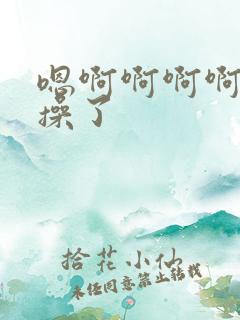 嗯啊啊啊啊
操了
拾花小仙
未经同意禁止转载